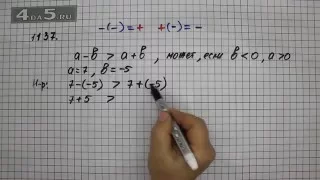 4DA5.RU
-(-) = +   +(-) = -
1137.
a-b > a+b , может, если b<0, a>0
a=7, b=-5
Н-р: 7-(-5) > 7+(-5)
7+5 >